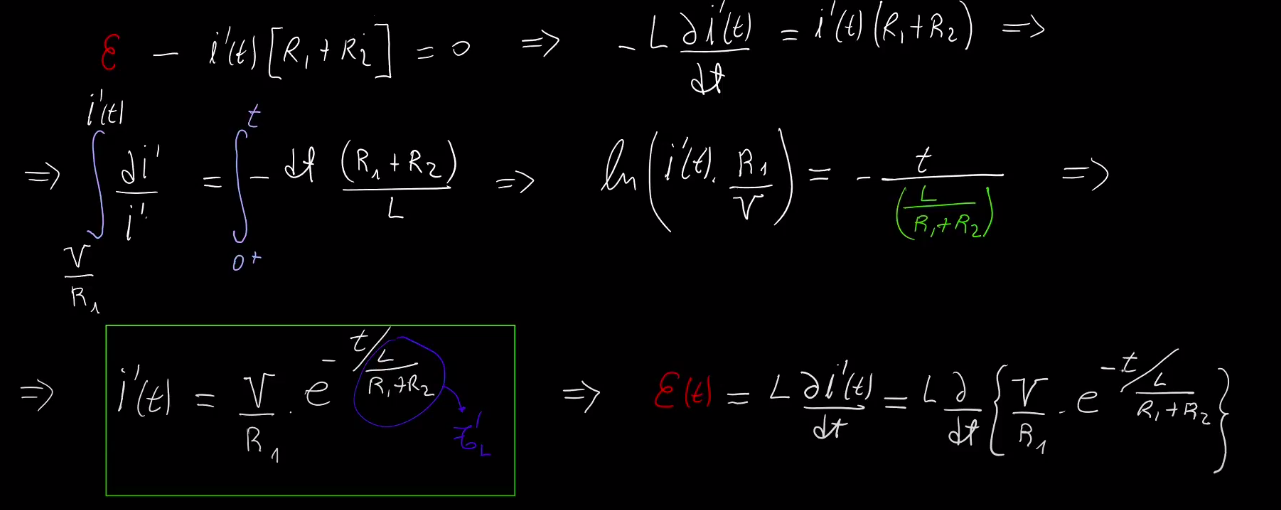 ℰ − i'(t)[R₁+R₂] = 0 ⇒ −L ∂i'(t)/dt = i'(t)(R₁+R₂) ⇒
⇒ ∫_{V/R₁}^{i'(t)} ∂i'/i' = ∫_{0+}^{t} −dt (R₁+R₂)/L ⇒ ln(i'(t)·R₁/V) = −t/(L/(R₁+R₂)) ⇒
⇒ i'(t) = V/R₁ · e^{−t/(L/(R₁+R₂))} ⇒ ℰ(t) = L ∂i'(t)/dt = L ∂/dt {V/R₁ · e^{−t/(L/(R₁+R₂))}}
τ'_L